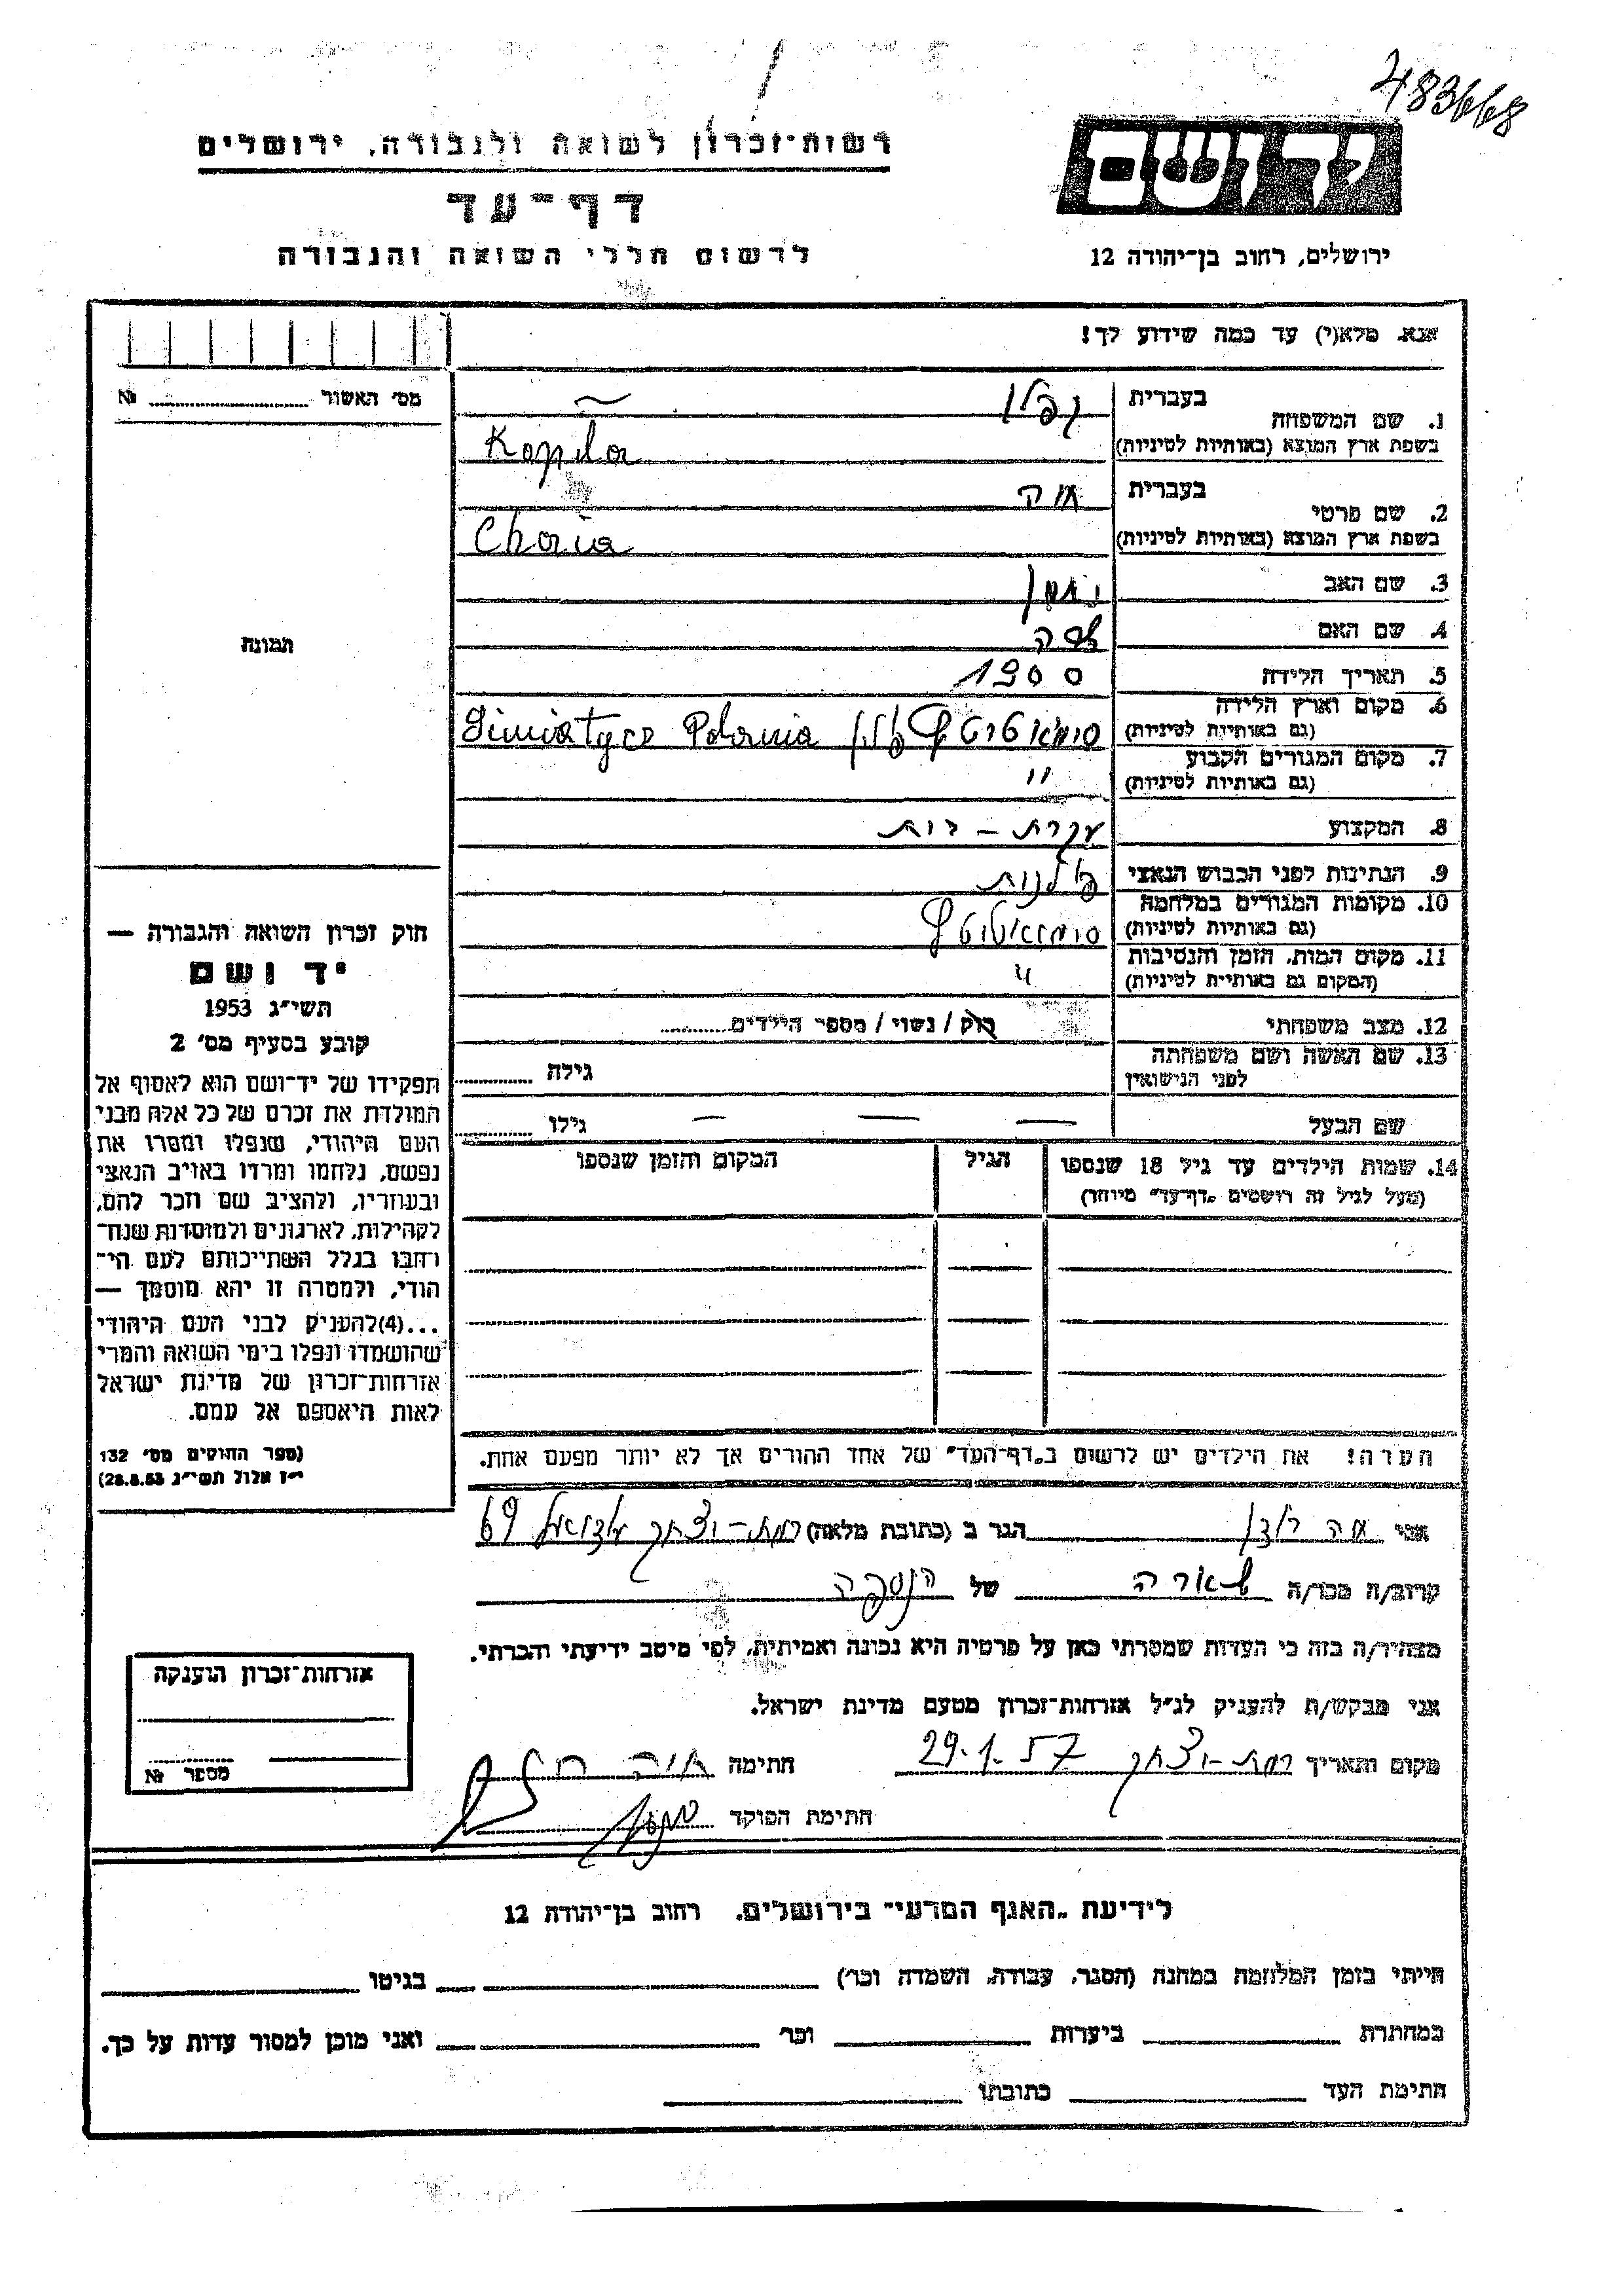 483668
רשות־זכרון לשואה ולגבורה, ירושלים
דף־עד
לרשום חללי השואה והגבורה
יד ושם
ירושלים, רחוב בן־יהודה 12
אנא, מלא(י) עד כמה שידוע לך!
מס׳ האשור № 
1. שם המשפחה בעברית
בשפת ארץ המוצא (באותיות לטיניות)
2. שם פרטי בעברית
בשפת ארץ המוצא (באותיות לטיניות) Chaia
3. שם האב
4. שם האם
5. תאריך הלידה 1900
6. מקום וארץ הלידה
(גם באותיות לטיניות) פולין
7. מקום המגורים הקבוע "
(גם באותיות לטיניות)
8. המקצוע עקרת – בית
9. הנתינות לפני הכבוש הנאצי פולנית
10. מקומות המגורים במלחמה
(גם באותיות לטיניות)
11. מקום המות, הזמן והנסיבות "
(המקום גם באותיות לטיניות)
12. מצב משפחתי רווק / נשוי / מספר הילדים
13. שם האשה ושם משפחתה גילה
לפני הנישואין
שם הבעל — — — גילו
14. שמות הילדים עד גיל 18 שנספו הגיל המקום והזמן שנספו
(מעל לגיל זה רושמים „דף־עד״ מיוחד)
הערה! את הילדים יש לרשום ב„דף־העד״ של אחד ההורים אך לא יותר מפעם אחת.
תמונה
חוק זכרון השואה והגבורה —
יד ושם
תשי״ג 1953
קובע בסעיף מס׳ 2
תפקידו של יד־ושם הוא לאסוף אל
המולדת את זכרם של כל אלה מבני
העם היהודי, שנפלו ומסרו את
נפשם, נלחמו ומרדו באויב הנאצי
ובעוזריו, ולהציב שם וזכר להם,
לקהילות, לארגונים ולמוסדות שנח־
רבו בגלל השתייכותם לעם הי־
הודי, ולמטרה זו יהא מוסמך —
...(4)להעניק לבני העם היהודי
שהושמדו ונפלו בימי השואה והמרי
אזרחות־זכרון של מדינת ישראל
לאות היאספם אל עמם.
(ספר החוקים מס׳ 132
י״ז אלול תשי״ג 28.8.53)
אני הגר ב (כתובת מלאה) רמת-יצחק 69
קרוב/ה מכר/ה של הנספה
מצהיר/ה בזה כי העדות שמסרתי כאן על פרטיה היא נכונה ואמיתית, לפי מיטב ידיעתי והכרתי.
אני מבקש/ת להעניק לנ״ל אזרחות־זכרון מטעם מדינת ישראל.
מקום ותאריך רמת-יצחק 29.1.57 חתימה
חתימת הפוקד
אזרחות־זכרון הוענקה
מספר №
לידיעת „האגף המדעי״ בירושלים, רחוב בן־יהודה 12
הייתי בזמן המלחמה במחנה (הסגר, עבודה, השמדה וכו׳) בגיטו
במחתרת ביערות וכו׳ ואני מוכן למסור עדות על כך.
חתימת העד כתובתו